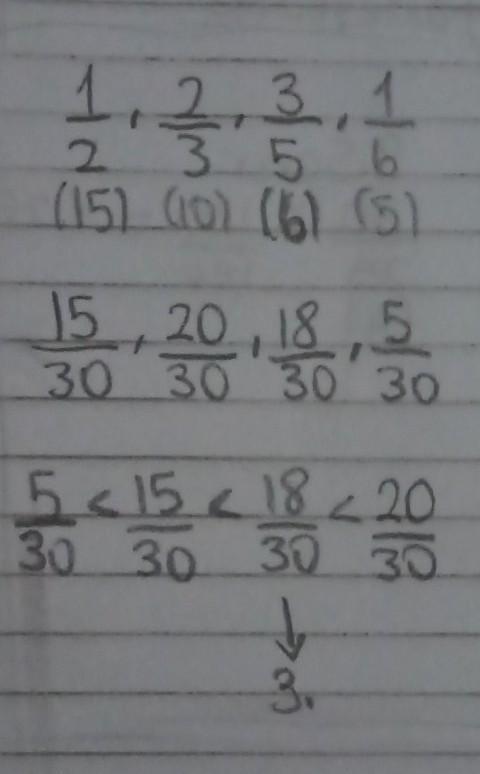 1/2, 2/3, 3/5, 1/6
(15) (10) (6) (5)
15/30, 20/30, 18/30, 5/30
5/30 < 15/30 < 18/30 < 20/30
↓
3.